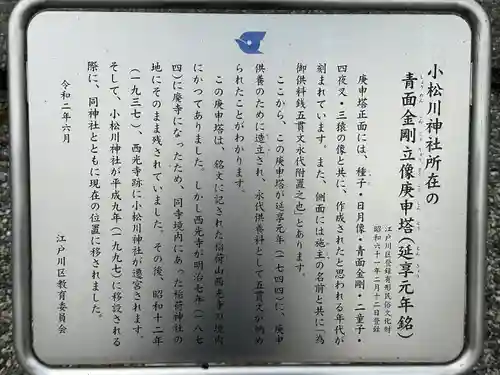 小松川神社所在の
青面金剛立像庚申塔（延享元年銘）
しょうめんこんごうりゅうぞうこうしんとう えんきょう
江戸川区登録有形民俗文化財
昭和六十一年二月十二日登録
庚申塔正面には、種子・日月像・青面金剛・二童子・
四夜叉・三猿の像と共に、作成されたと思われる年代が
刻まれています。また、側面には施主の名前と共に「為
御供料銭五貫文永代附置之也」とあります。
ここから、この庚申塔が延享元年（一七四四）に、庚申
供養のために造立され、永代供養料として五貫文が納め
られたことがわかります。
この庚申塔は、銘文に記された稲荷山西光寺の境内
にかつてありました。しかし西光寺が明治七年（一八七
四）に廃寺になったため、同寺境内にあった稲荷神社の
地にそのまま残されていました。その後、昭和十二年
（一九三七）、西光寺跡に小松川神社が遷宮されます。
そして、小松川神社が平成九年（一九九七）に移設される
際に、同神社とともに現在の位置に移されました。
令和二年六月
江戸川区教育委員会